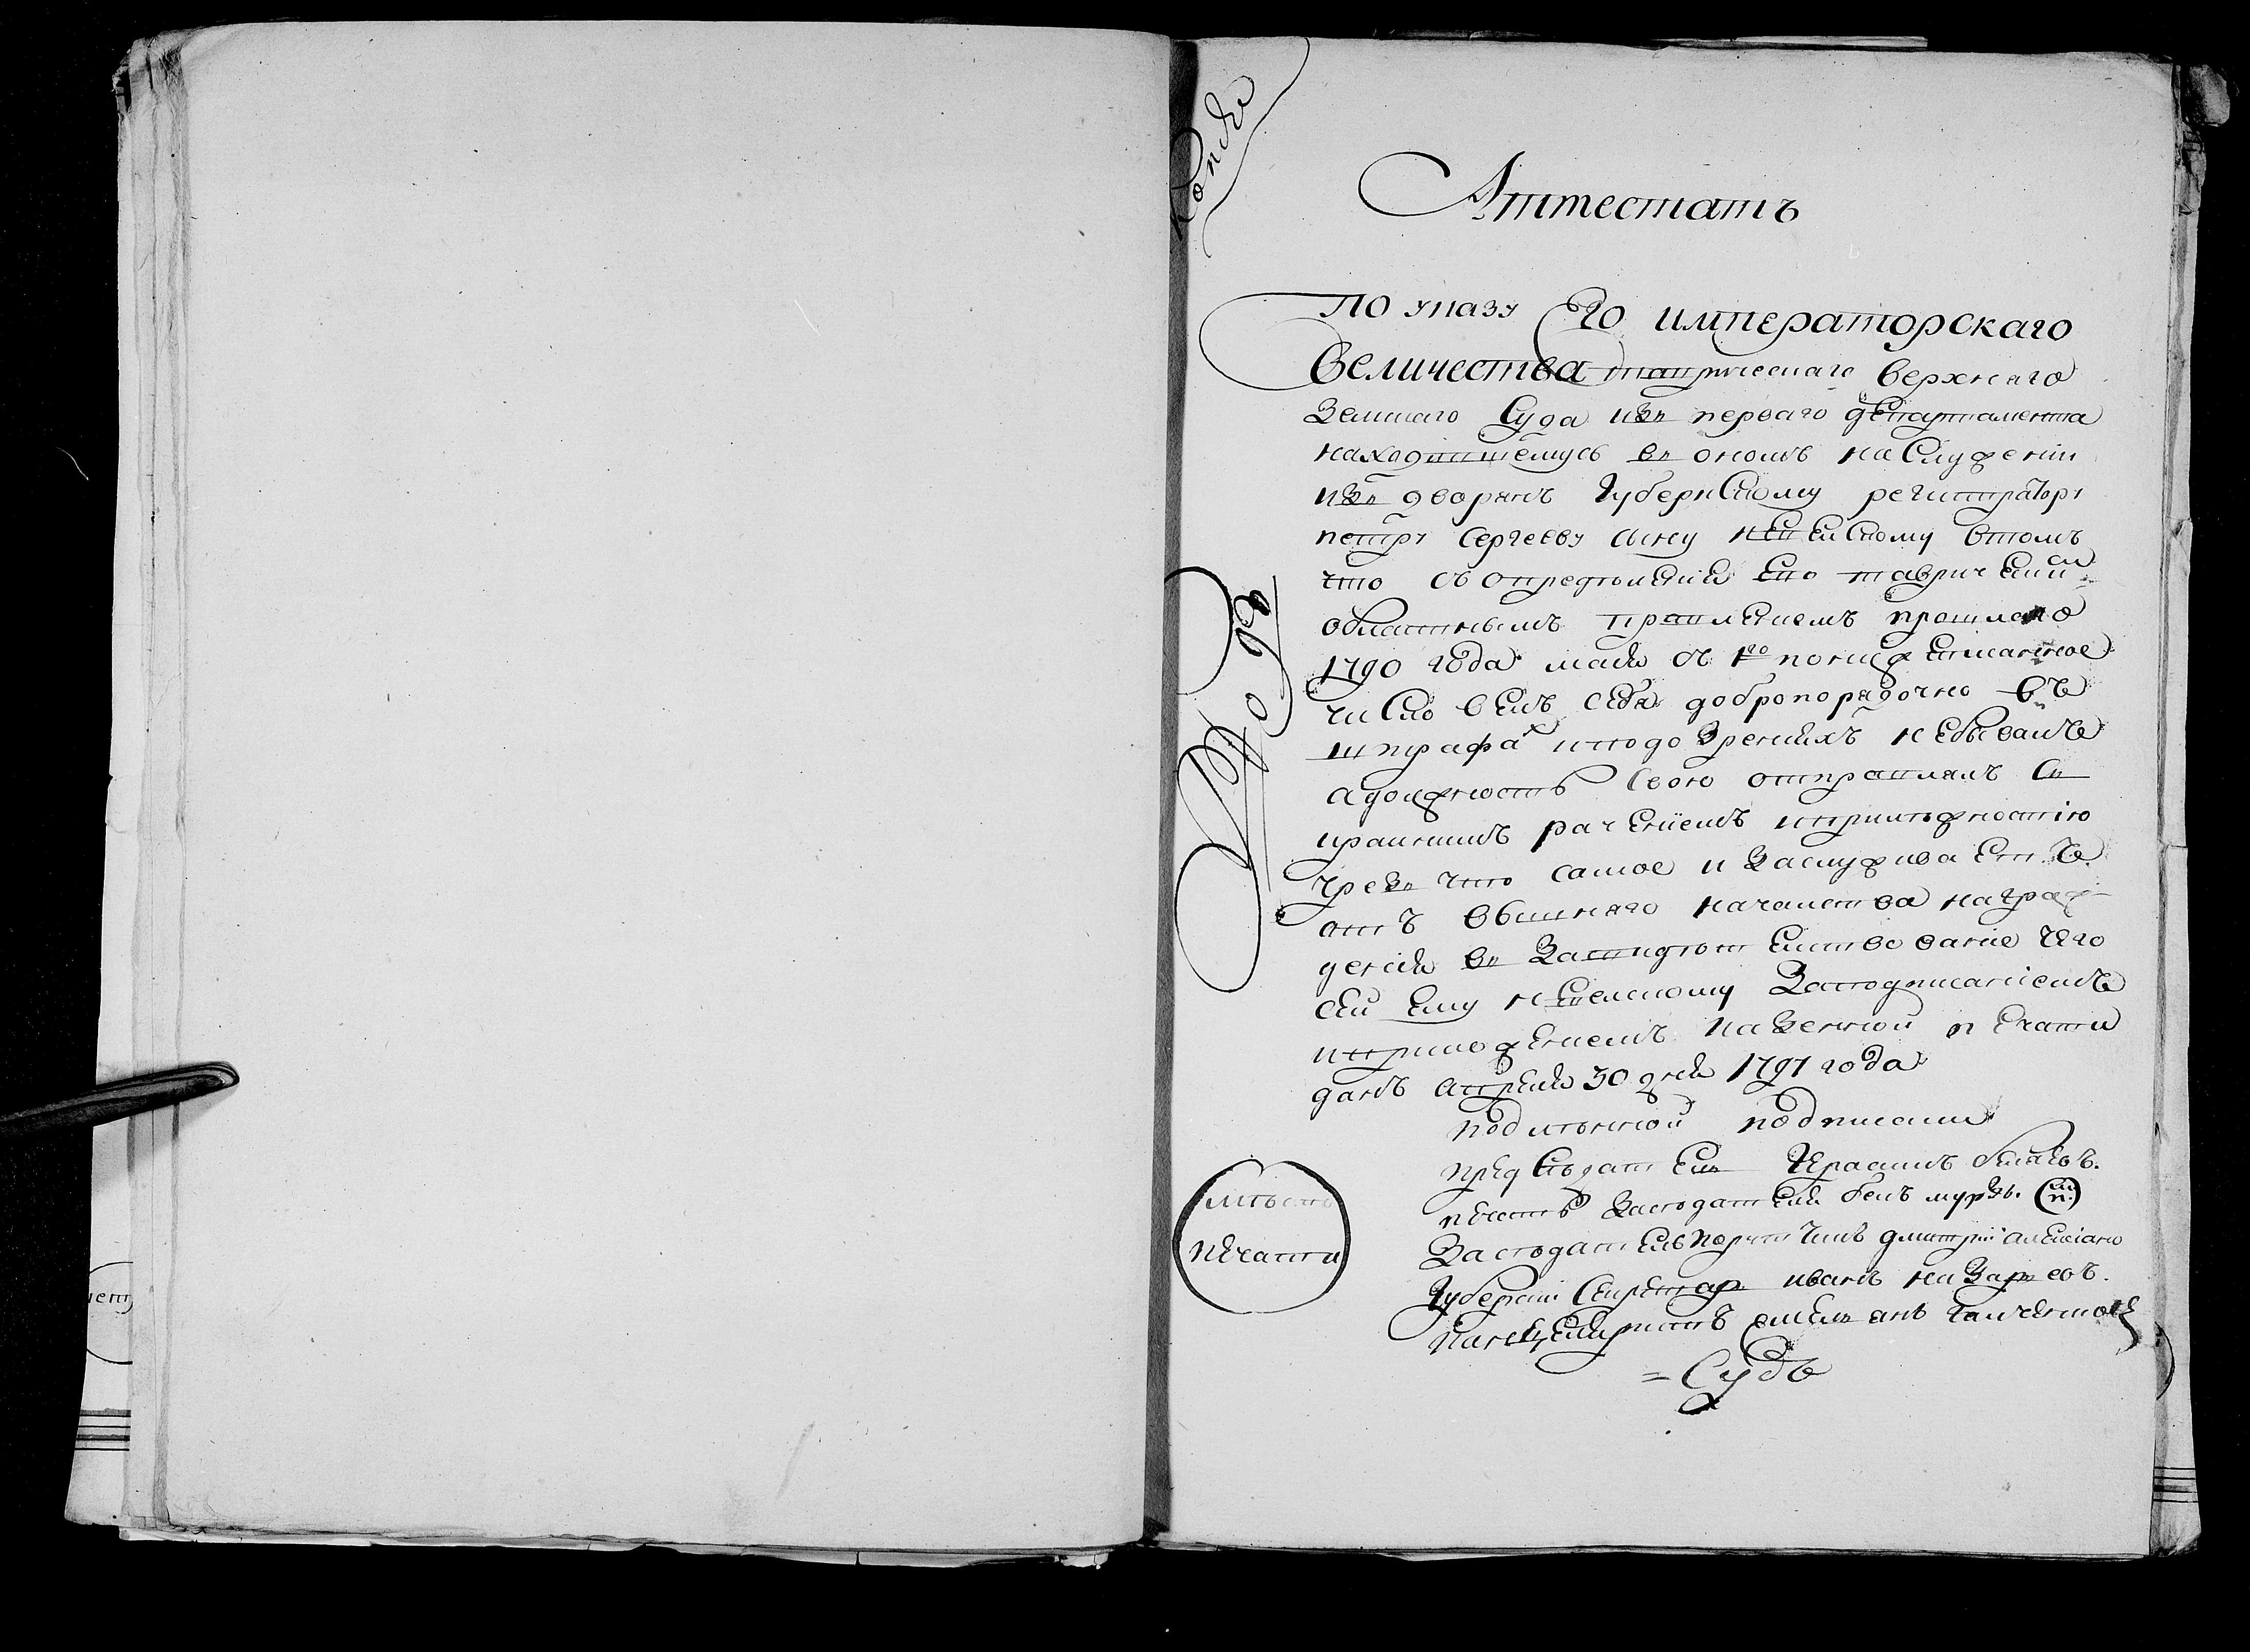 Копія
Аттестатъ
по указу Его императорскаго
Величества таврическаго верхняго
Земскаго Суда изъ перваго департамента
находившемусь въ ономъ на Служеніи
изъ дворянъ Губернскому регистратору
петру Сергееву сыну втомъ
что съ опредѣленія Его таврическим
областнымъ правленіемъ прошлаго
1790 года маія съ 1го понижеписанное
число велъ себя добропорядочно въ
штрафах иподозреніяхъ небывалъ
адолжность свою отправлялъ съ
крайнимъ раченіемъ иприлѣжностію
чрезъ что самое и Заслуживаетъ
отъ вышняго начальства награж
денія въ Засвидѣтельствованіе чего
сей Ему Заподписаніемъ
иприложеніемъ казенной печати
данъ апреля 30 дня 1797 года
подлѣнной подписали
предсѣдатель
печать Заседателя бей мурзы. (м п)
Заседатель порутчикъ дмитрій
Губернски Секретарь иванъ назаровъ.
канцеляристъ емельянъ
= Судъ
мѣсто
печати